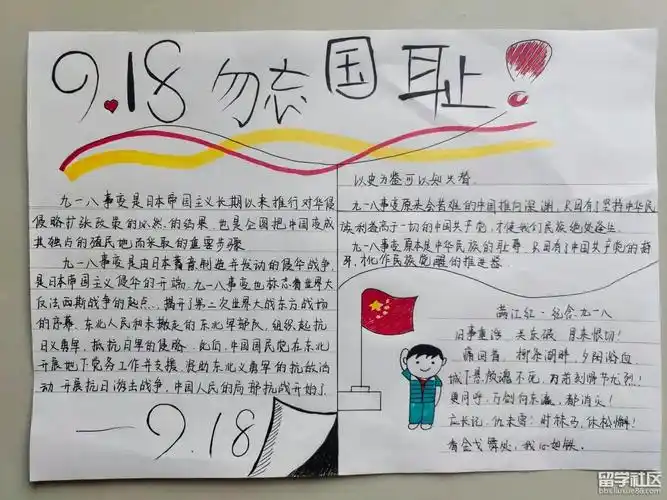 9.18 勿忘国耻
九一八事变是日本帝国主义长期以来推行对华侵
侵略扩张政策的必然的结果,也是企图把中国变成
其独占的殖民地而采取的重要步骤
九一八事变是由日本蓄意制造并发动的侵华战争,
是日本帝国主义侵华的开端.九一八事变也标志着世界大
反法西斯战争的起点,揭开了第二次世界大战东方战场
的序幕.东北人民和未撤走的东北军部队,组织起抗
日义勇军,抵抗日军的侵略.此后,中国国民党在东北
开展地下党务工作并支援、资助东北义勇军的抗敌活
动.开展抗日游击战争,中国人民的局部抗战开始了.
—9.18
以史为鉴可以知兴替
九一八事变原来会苦难的中国推向深渊,只因有了坚持中华民
族利益高于一切的中国共产党,才使我们民族绝处逢生.
九一八事变原本是中华民族的耻辱,只因有了中国共产党的
才化作民族觉醒的推进器
满江红·纪念九一八
旧事重游 关东强 月来恨切!
痛回首,柳条湖畔,夕阳游血
城下忠魂不死,
更同呼,万剑向东瀛,都消灭!
忘长记,仇未雪;时秣马,休松懈!
有金戈舞处,我心如铁.
留学社区
bbs.liuxue86.com